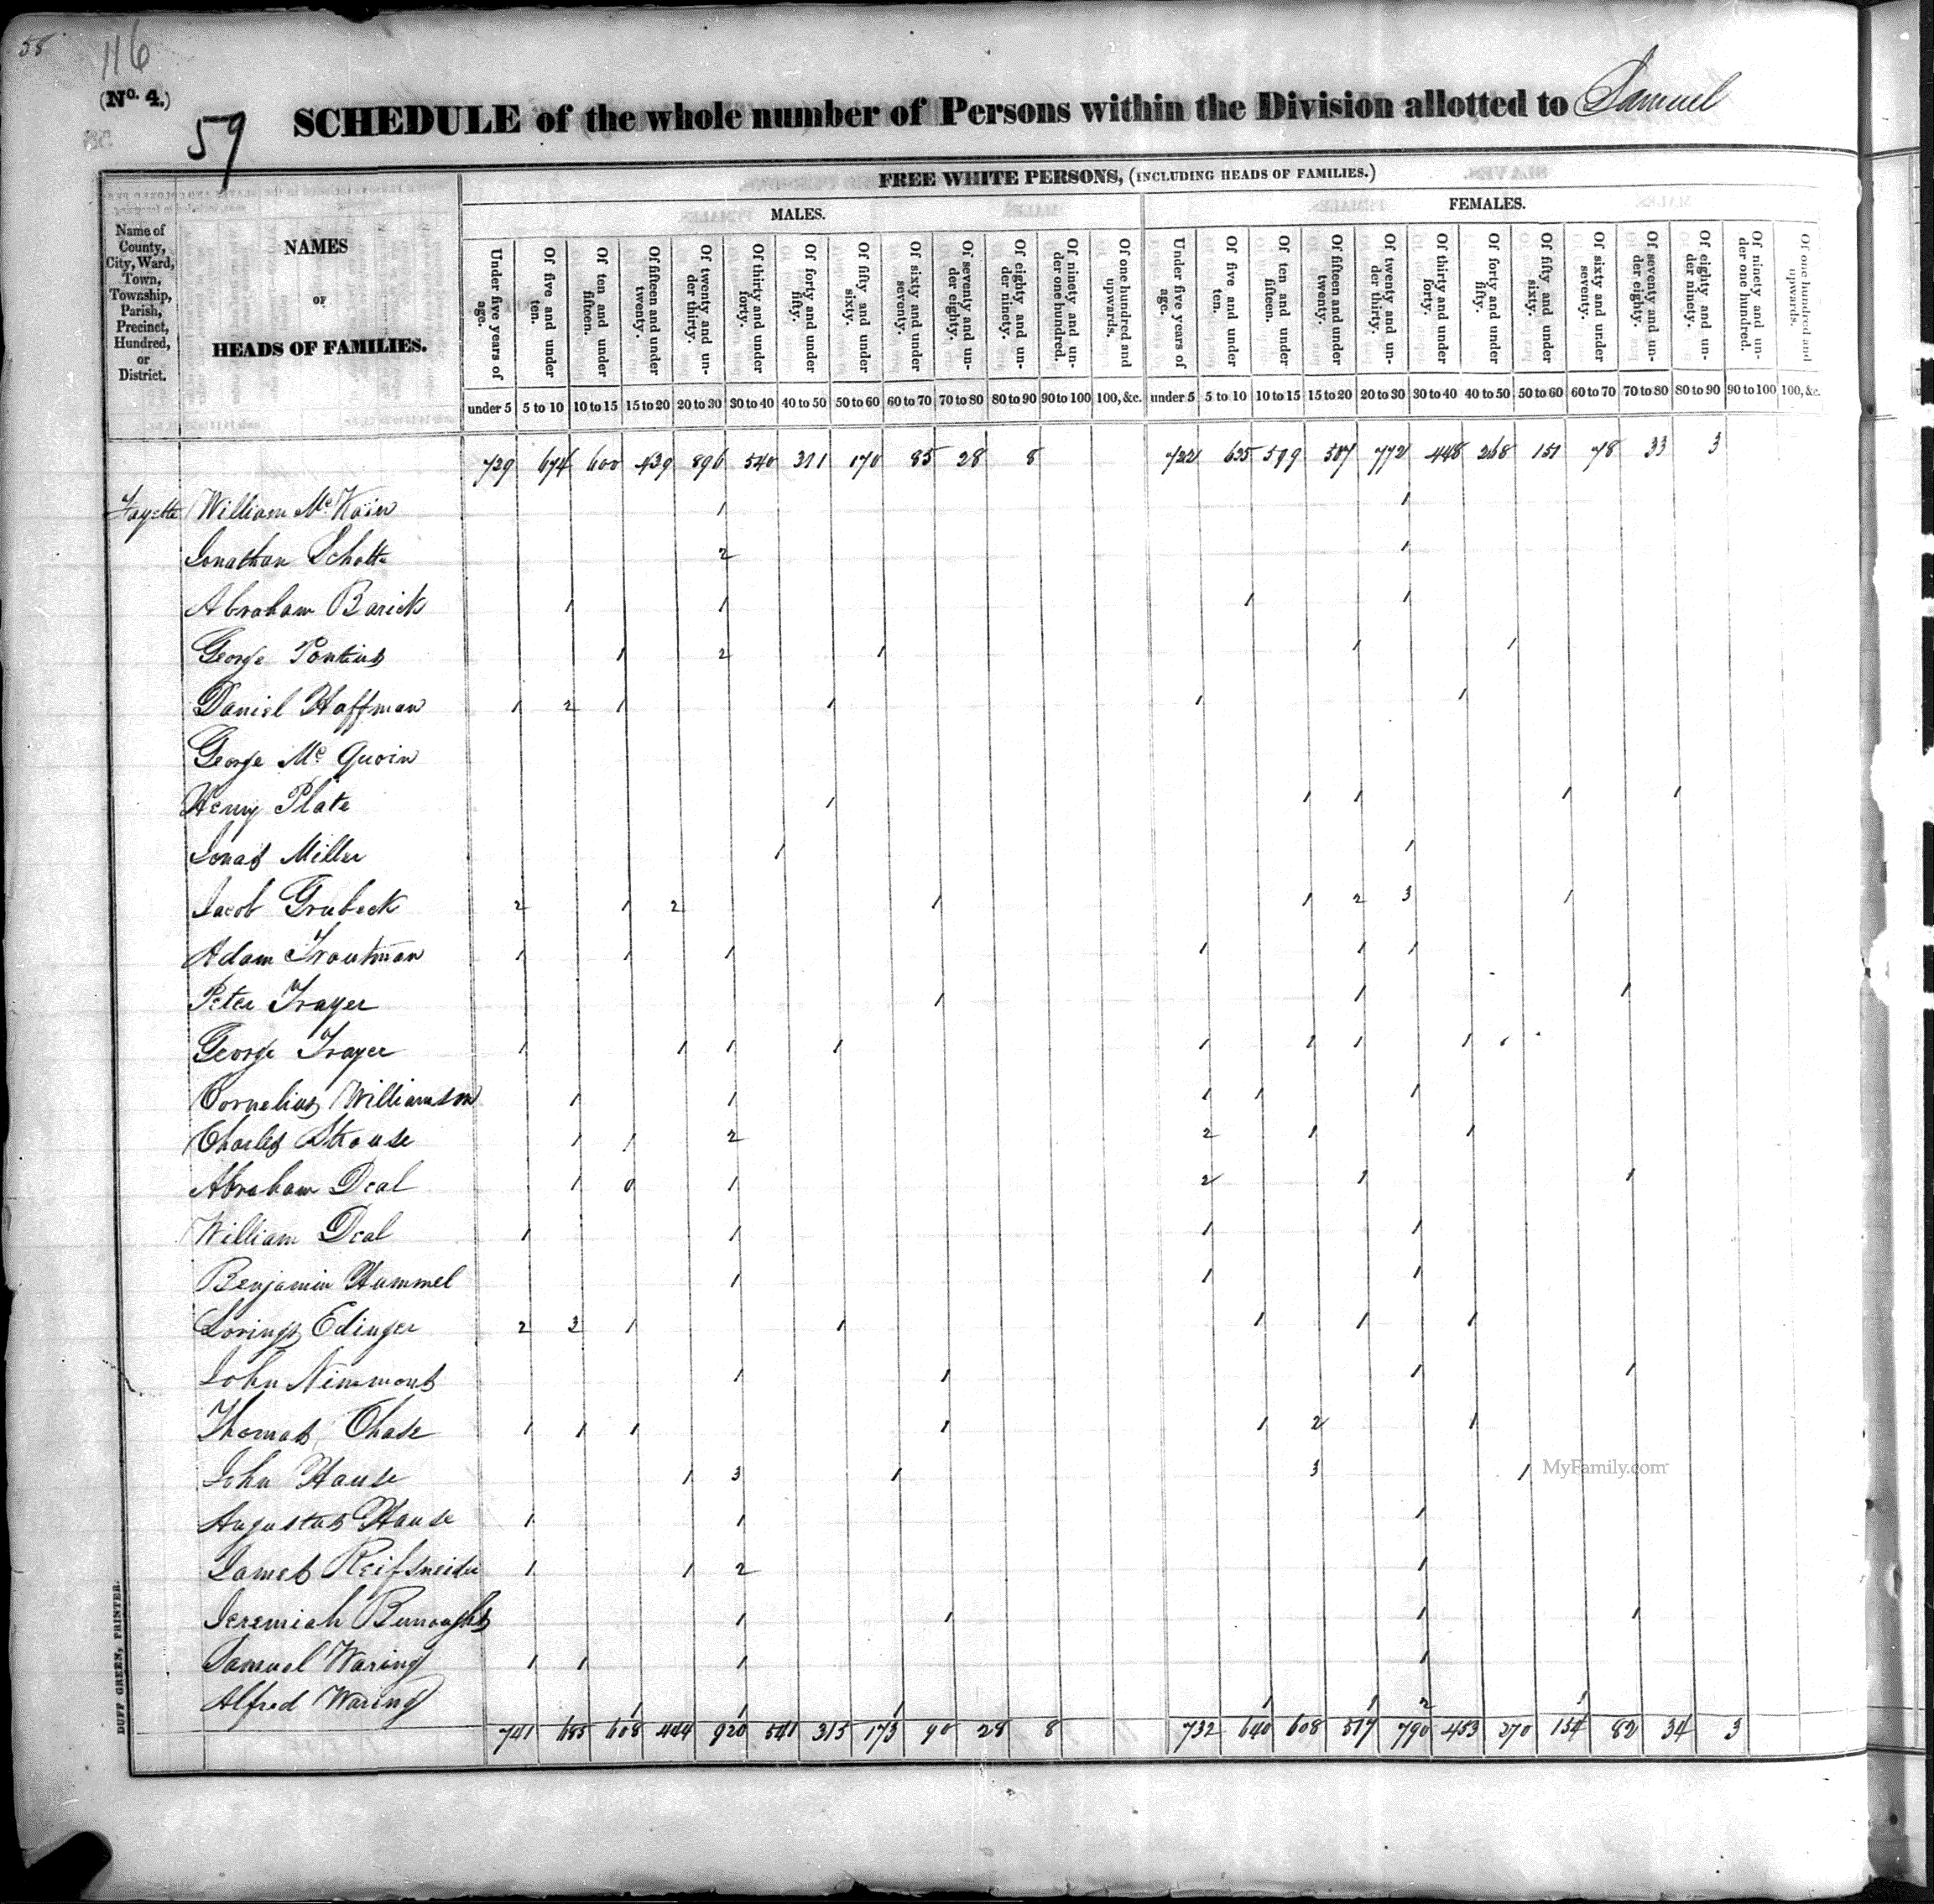 58
116
(No. 4.)
59
SCHEDULE of the whole number of Persons within the Division allotted to Samuel
FREE WHITE PERSONS, (INCLUDING HEADS OF FAMILIES.)
MALES. FEMALES.
Name of County, City, Ward, Town, Township, Parish, Precinct, Hundred, or District.
NAMES
OF
HEADS OF FAMILIES.
Under five years of age.
Of five and under ten.
Of ten and under fifteen.
Of fifteen and under twenty.
Of twenty and under thirty.
Of thirty and under forty.
Of forty and under fifty.
Of fifty and under sixty.
Of sixty and under seventy.
Of seventy and under eighty.
Of eighty and under ninety.
Of ninety and under one hundred.
Of one hundred and upwards.
Under five years of age.
Of five and under ten.
Of ten and under fifteen.
Of fifteen and under twenty.
Of twenty and under thirty.
Of thirty and under forty.
Of forty and under fifty.
Of fifty and under sixty.
Of sixty and under seventy.
Of seventy and under eighty.
Of eighty and under ninety.
Of ninety and under one hundred.
Of one hundred and upwards.
under 5 5 to 10 10 to 15 15 to 20 20 to 30 30 to 40 40 to 50 50 to 60 60 to 70 70 to 80 80 to 90 90 to 100 100, &c. under 5 5 to 10 10 to 15 15 to 20 20 to 30 30 to 40 40 to 50 50 to 60 60 to 70 70 to 80 80 to 90 90 to 100 100, &c.
729 674 600 439 896 540 311 170 85 28 8 722 635 599 507 772 448 268 151 78 33 3
Fayette William McKain 1 1
Jonathan 2 1
Abraham Barick 1 1 1 1
George Pontius 1 2 1 1 1
Daniel Hoffman 1 2 1 1 1 1
George Mc Quoin
Henry Plate 1 1 1 1 1
Jonas Miller 1 1
Jacob Grubeck 2 1 2 1 1 2 3 1
Adam Troutman 1 1 1 1 1 1
Peter Trayer 1 1 1
George Trayer 1 1 1 1 1 1 1 1
Cornelius Williamson 1 1 1 1 1
Charles Strouse 1 1 2 2 1 1
Abraham Deal 1 0 1 2 1 1
William Deal 1 1 1 1
Benjamin Hummel 1 1 1
Edinger 2 3 1 1 1 1 1
John Nimmons 1 1 1 1
Thomas Chase 1 1 1 1 1 2 1
John Hause 1 3 1 3 1
Augustus Hause 1 1 1
James Reifsneider 1 1 2 1
Jeremiah Burroughs 1 1 1 1
Samuel Waring 1 1 1 1
Alfred Waring 1 1 1 1 1 2 1
741 685 608 444 920 541 313 173 90 28 8 732 640 608 517 790 453 270 154 82 34 3
DUFF GREEN, PRINTER.
MyFamily.com